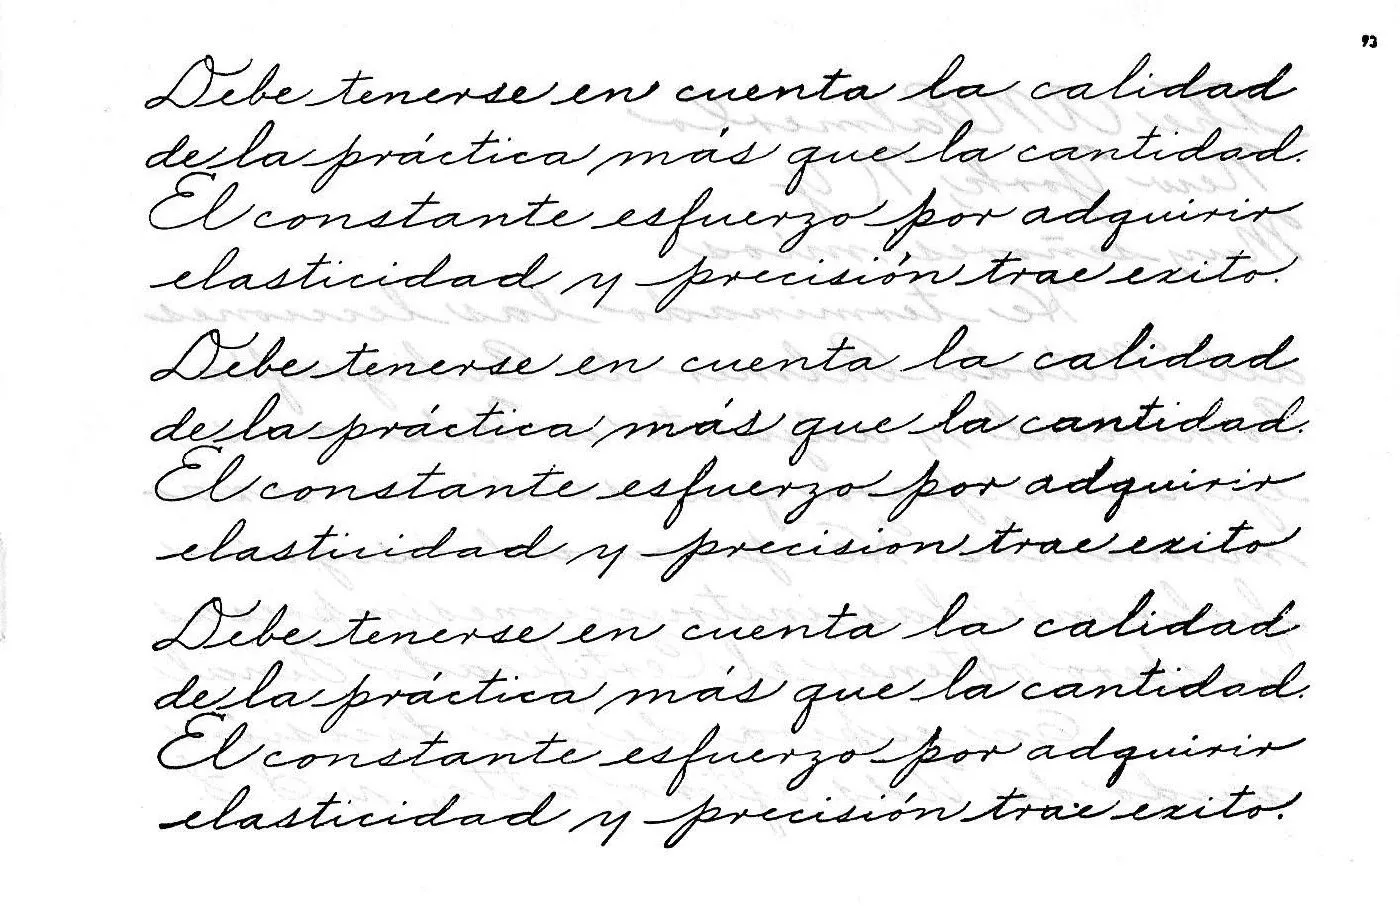 93
Debe tenerse en cuenta la calidad
de la práctica más que la cantidad.
El constante esfuerzo por adquirir
elasticidad y precisión trae exito.
Debe tenerse en cuenta la calidad
de la práctica más que la cantidad.
El constante esfuerzo por adquirir
elasticidad y precision trae exito
Debe tenerse en cuenta la calidad
de la práctica más que la cantidad.
El constante esfuerzo por adquirir
elasticidad y precisión trae exito.